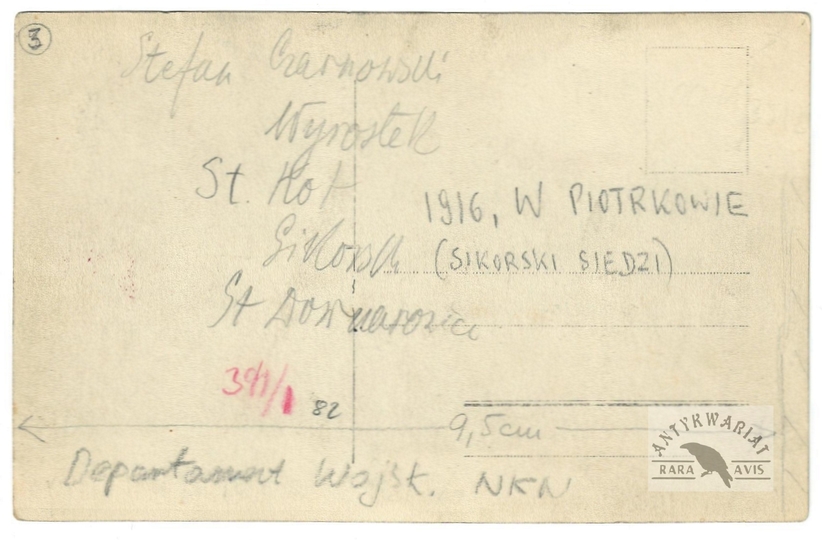 3
Stefan Czarnowski
Wyrostek
St. Kot
Sikorski
St Downarowicz
1916, W PIOTRKOWIE
(SIKORSKI SIEDZI)
391/1 82
9,5cm
Departament Wojsk. NKN
ANTYKWARIAT
RARA AVIS